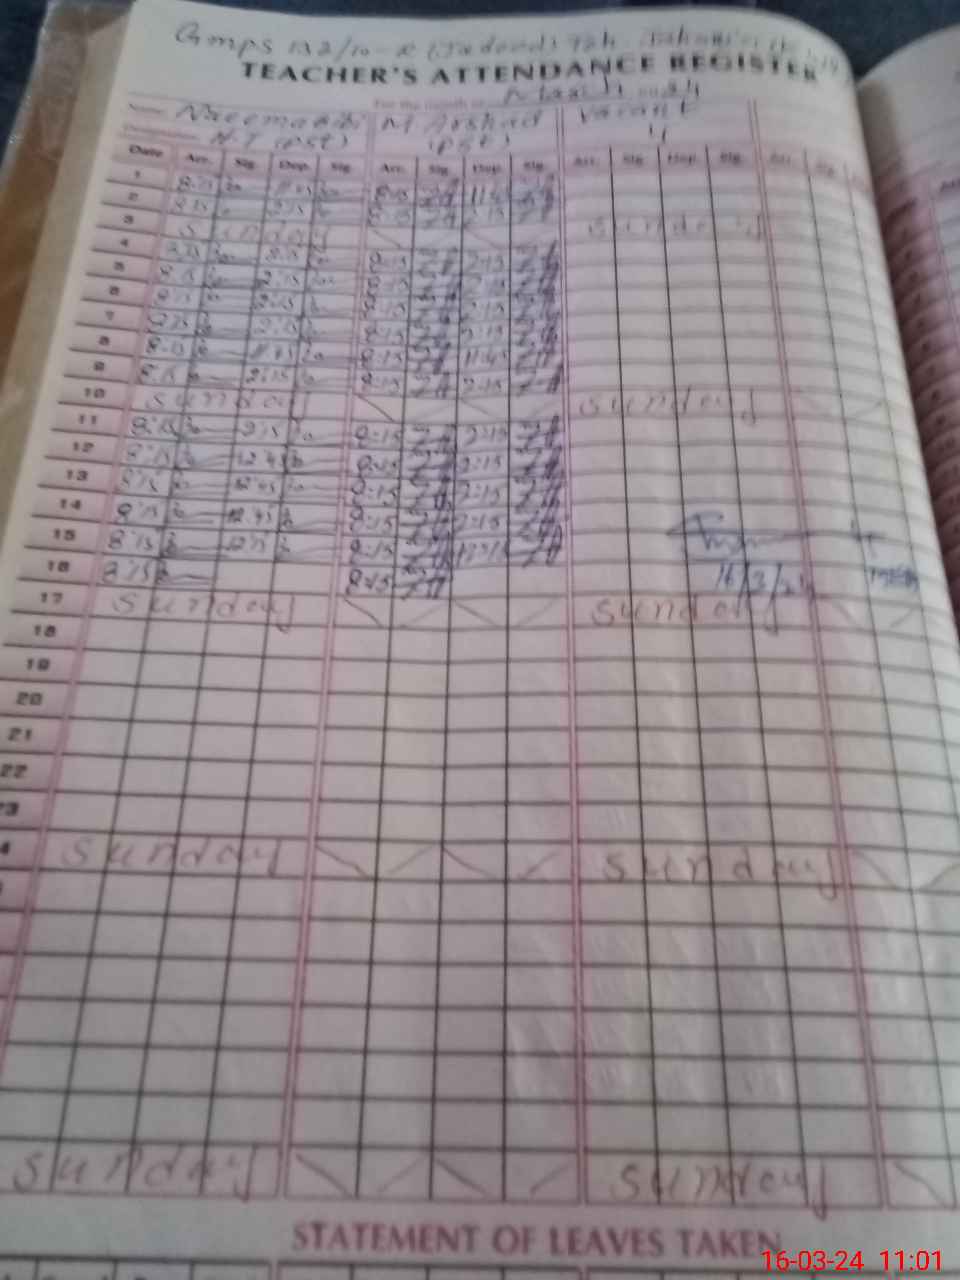 TEACHER'S ATTENDANCE REGISTER
For the month of March 24
Name Naeema Bibi M Arshad Vacant
H.T (PST) (PST)
Date Arr. Sig. Dep. Sig. Arr. Sig. Dep. Sig. Arr. Sig. Dep. Sig.
1 8:15 11:45 8:15 11:45
2 8:15 2:15 8:15 2:15
3 Sunday Sunday
4 8:15 2:15 8:15 2:15
5 8:15 2:15 8:15 2:15
6 8:15 2:15 8:15 2:15
7 8:15 2:15 8:15 2:15
8 8:15 11:45 8:15 11:45
9 8:15 2:15 8:15 2:15
10 Sunday Sunday
11 8:15 2:15 8:15 2:15
12 8:15 12:45 8:15 2:15
13 8:15 12:45 8:15 2:15
14 8:15 12:45 8:15 2:15
15 8:15 12:15 8:15 12:15
16 8:15 8:15 16/3/24
17 Sunday Sunday
18
19
20
21
22
23
Sunday Sunday
Sunday Sunday
STATEMENT OF LEAVES TAKEN
16-03-24 11:01